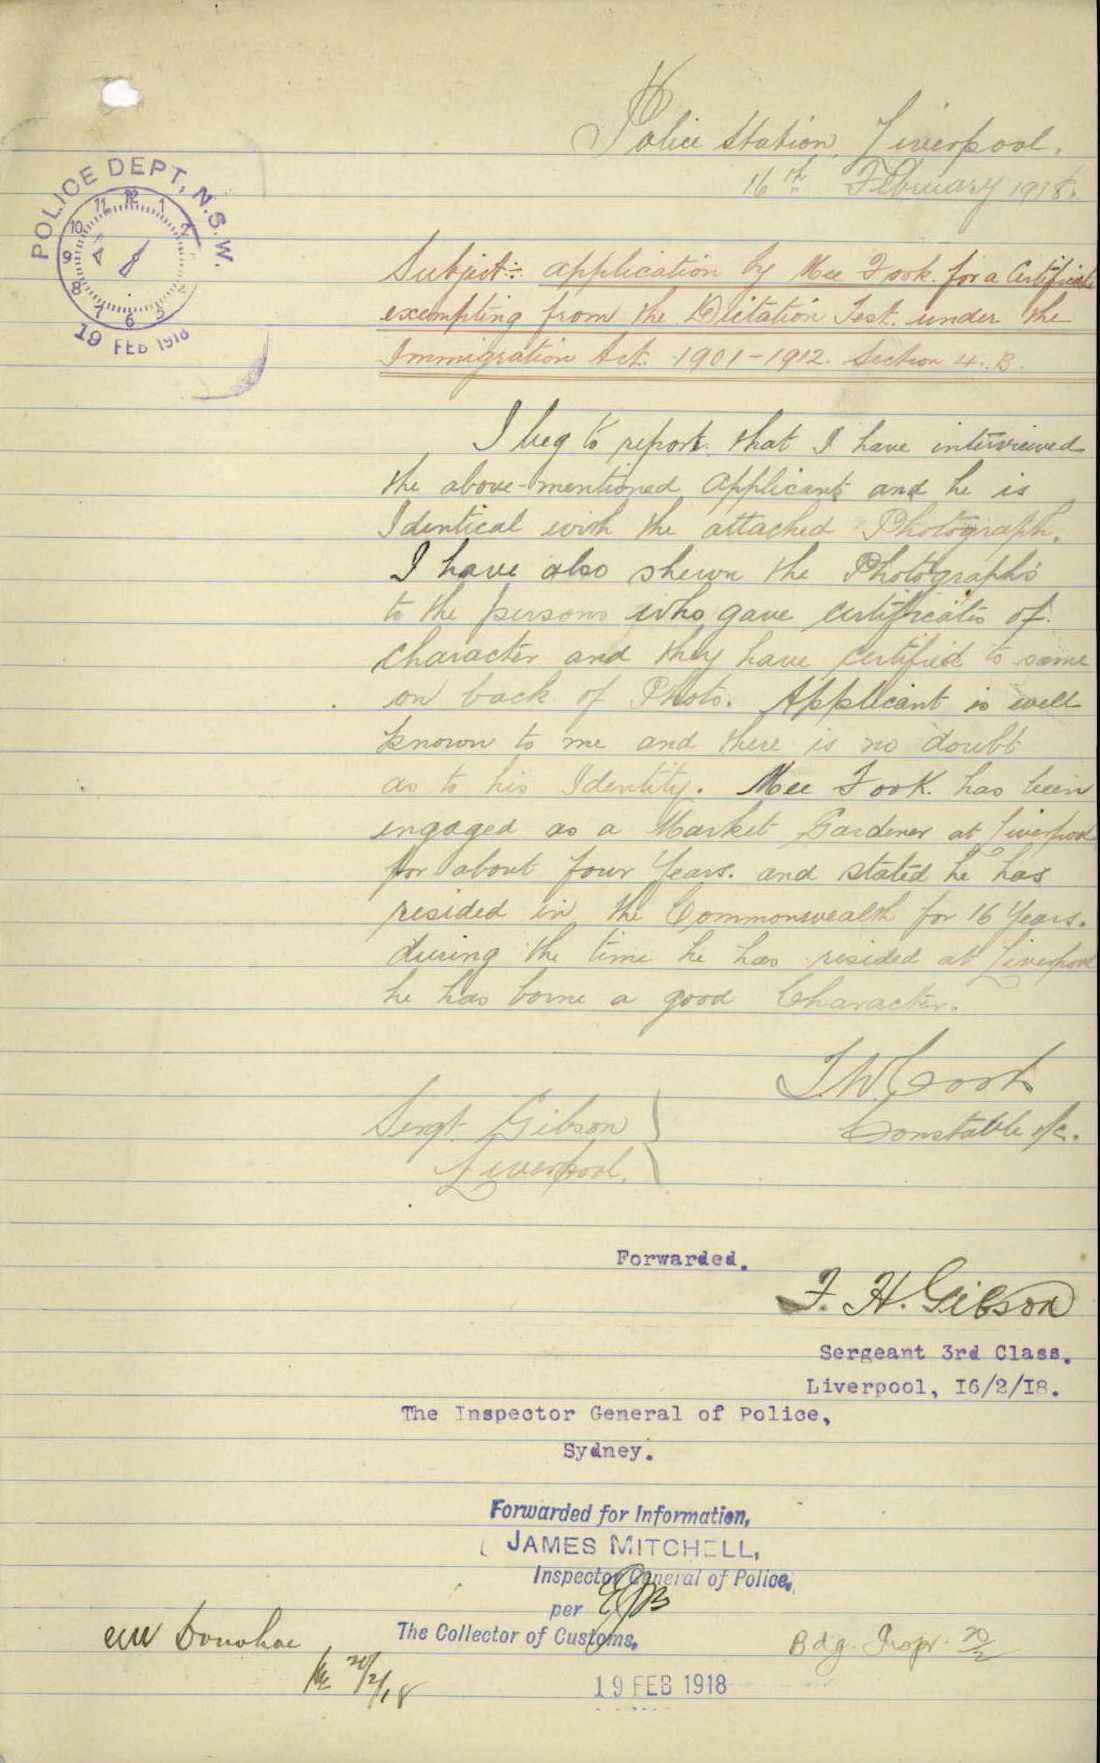 Police Station, Liverpool.
16th February 1918.
POLICE DEPT, N.S.W.
12
11 1
10 2
9
8 4
7 6 5
19 FEB 1918
Subject:- Application by Mee Fook. for a Certificate
exempting from the Dictation Test. under the
Immigration Act. 1901-1912. Section 4.B.
I beg to report. that I have interviewed
the above-mentioned Applicant and he is
Identical with the attached Photograph.
I have also shewn the Photographs
to the persons who gave certificates of
Character and they have certified to same
on back of Photo. Applicant is well
known to me and there is no doubt
as to his Identity. Mee Fook. has been
engaged as a Market Gardener at Liverpool
for about four Years. and stated he has
resided in the Commonwealth for 16 Years.
during the time he has resided at Liverpool
he has borne a good Character.
T.W. Cook
Constable 1/c.
Sergt. Gibson
Liverpool.
Forwarded.
F. H. Gibson
Sergeant 3rd Class.
Liverpool, I6/2/I8.
The Inspector General of Police,
Sydney.
Forwarded for Information,
JAMES MITCHELL,
Inspector General of Police.
per
The Collector of Customs.
Donohoe
20/2/18
Bdg. Inspr. 20/2
19 FEB 1918